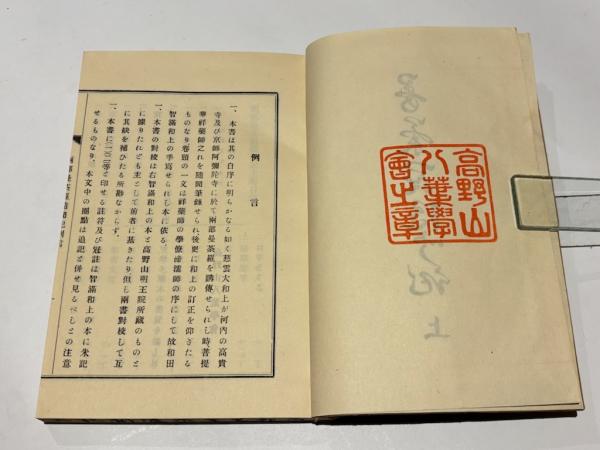 高野山
八葉學
會之章
上
例言
一、本書は其の自序に明らかなる如く慈雲大和上が河内の高貴
寺及び京師阿彌陀寺に於て兩部曼荼羅を講傳せられし時菩提
華祥蘂師之れを隨聞筆錄せられ後更に和上の訂正を仰ぎたる
ものなり卷頭の一文は祥蘂師の學僚諦濡師の序にして故和田
智滿和上の手寫せられし本に依る。
一、本書の對校は右智滿和上の本と高野山明王院所藏のものと
に據りたれども主として前者に基きたり但し兩書對校して互
に其缺を補ひたる所勘なからず。
一、本書に(一)(二)等と印せる註符及び冠註は智滿和上の本に朱記
せるものなり、本文中の圈點は追記と併せ見るべしとの注意